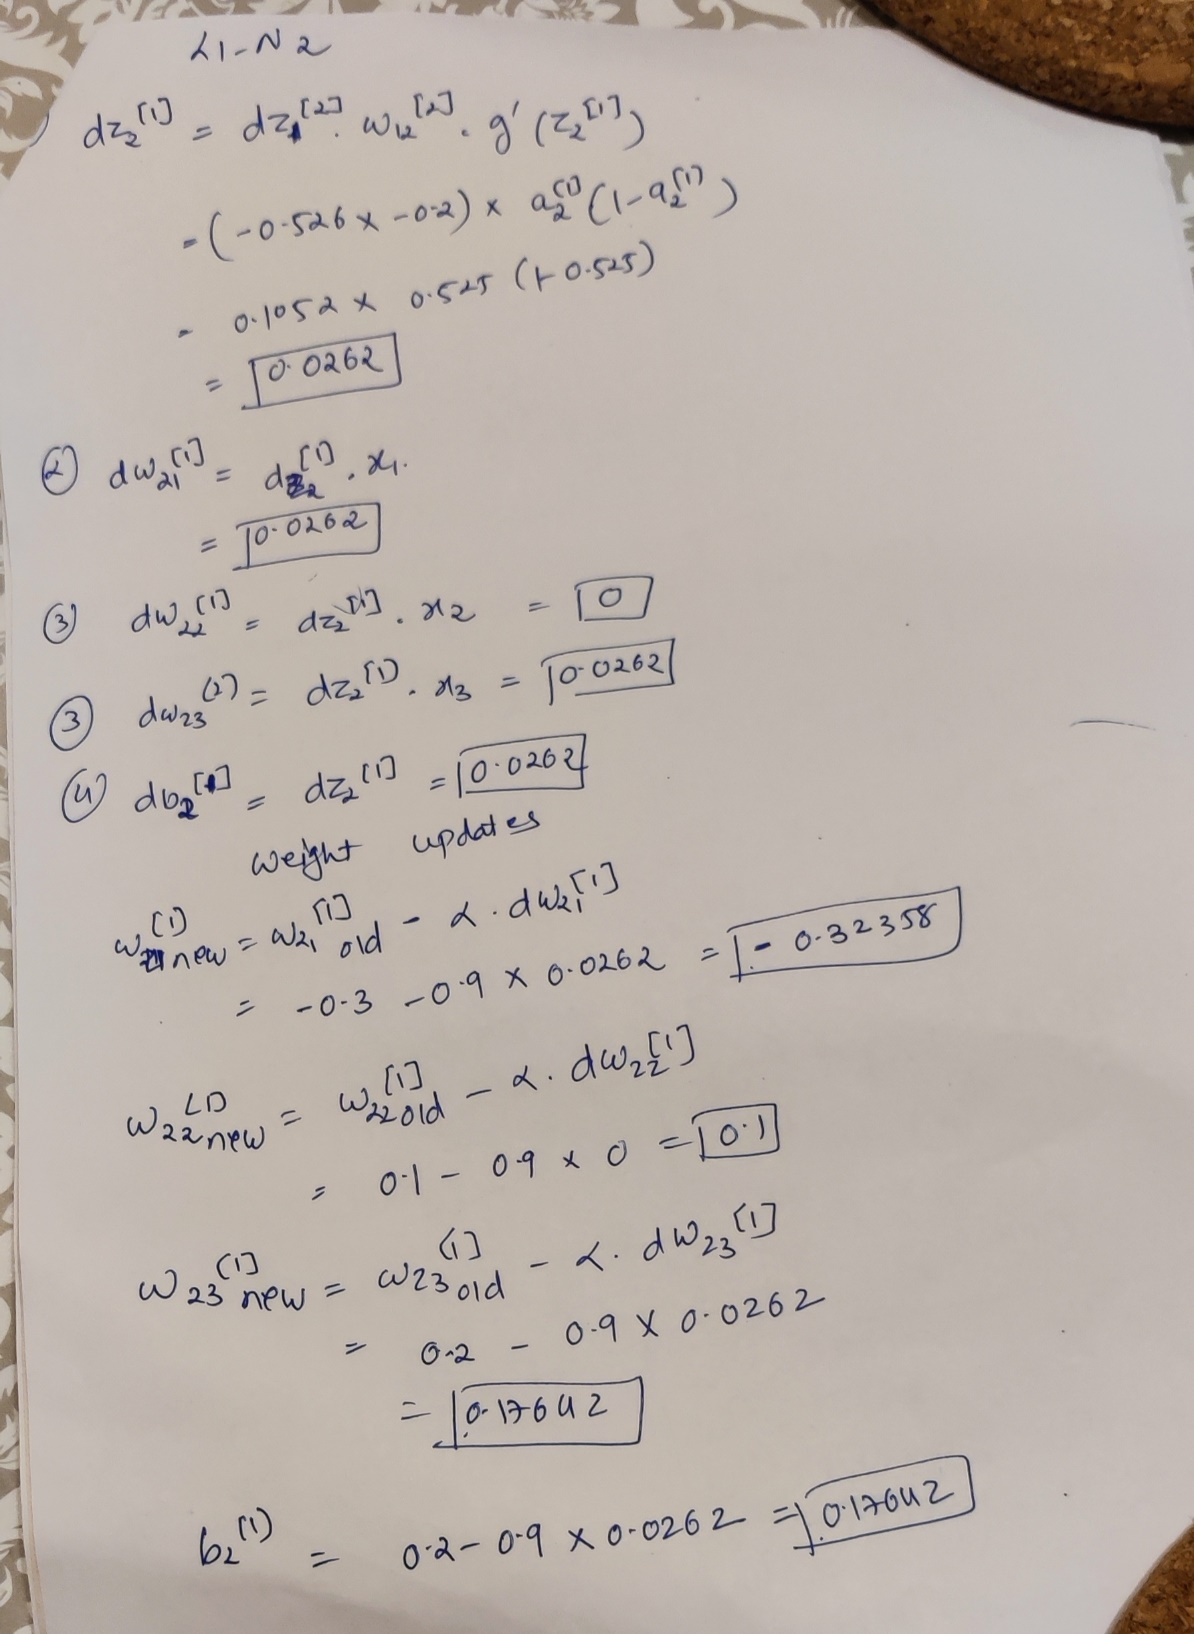 L1-N2
dz₂^[1] = dz₁^[2] · w₁₂^[2] · g'(z₂^[1])
= (-0.526 x -0.2) x a₂^[1] (1-a₂^[1])
= 0.1052 x 0.525 (1-0.525)
= 0.0262
② dw₂₁^[1] = dz₂^[1] · x₁.
= 0.0262
③ dw₂₂^[1] = dz₂^[1] · x₂ = 0
③ dw₂₃^(2) = dz₂^[1] · x₃ = 0.0262
④ db₂^[1] = dz₂^[1] = 0.0262
weight updates
w₂₁^[1] new = w₂₁^[1] old - α · dw₂₁^[1]
= -0.3 - 0.9 x 0.0262 = -0.32358
w₂₂^[1] new = w₂₂^[1] old - α. dw₂₂^[1]
= 0.1 - 0.9 x 0 = 0.1
w₂₃^[1] new = w₂₃^[1] old - α. dw₂₃^[1]
= 0.2 - 0.9 x 0.0262
= 0.17642
b₂^(1) = 0.2 - 0.9 x 0.0262 = 0.17642